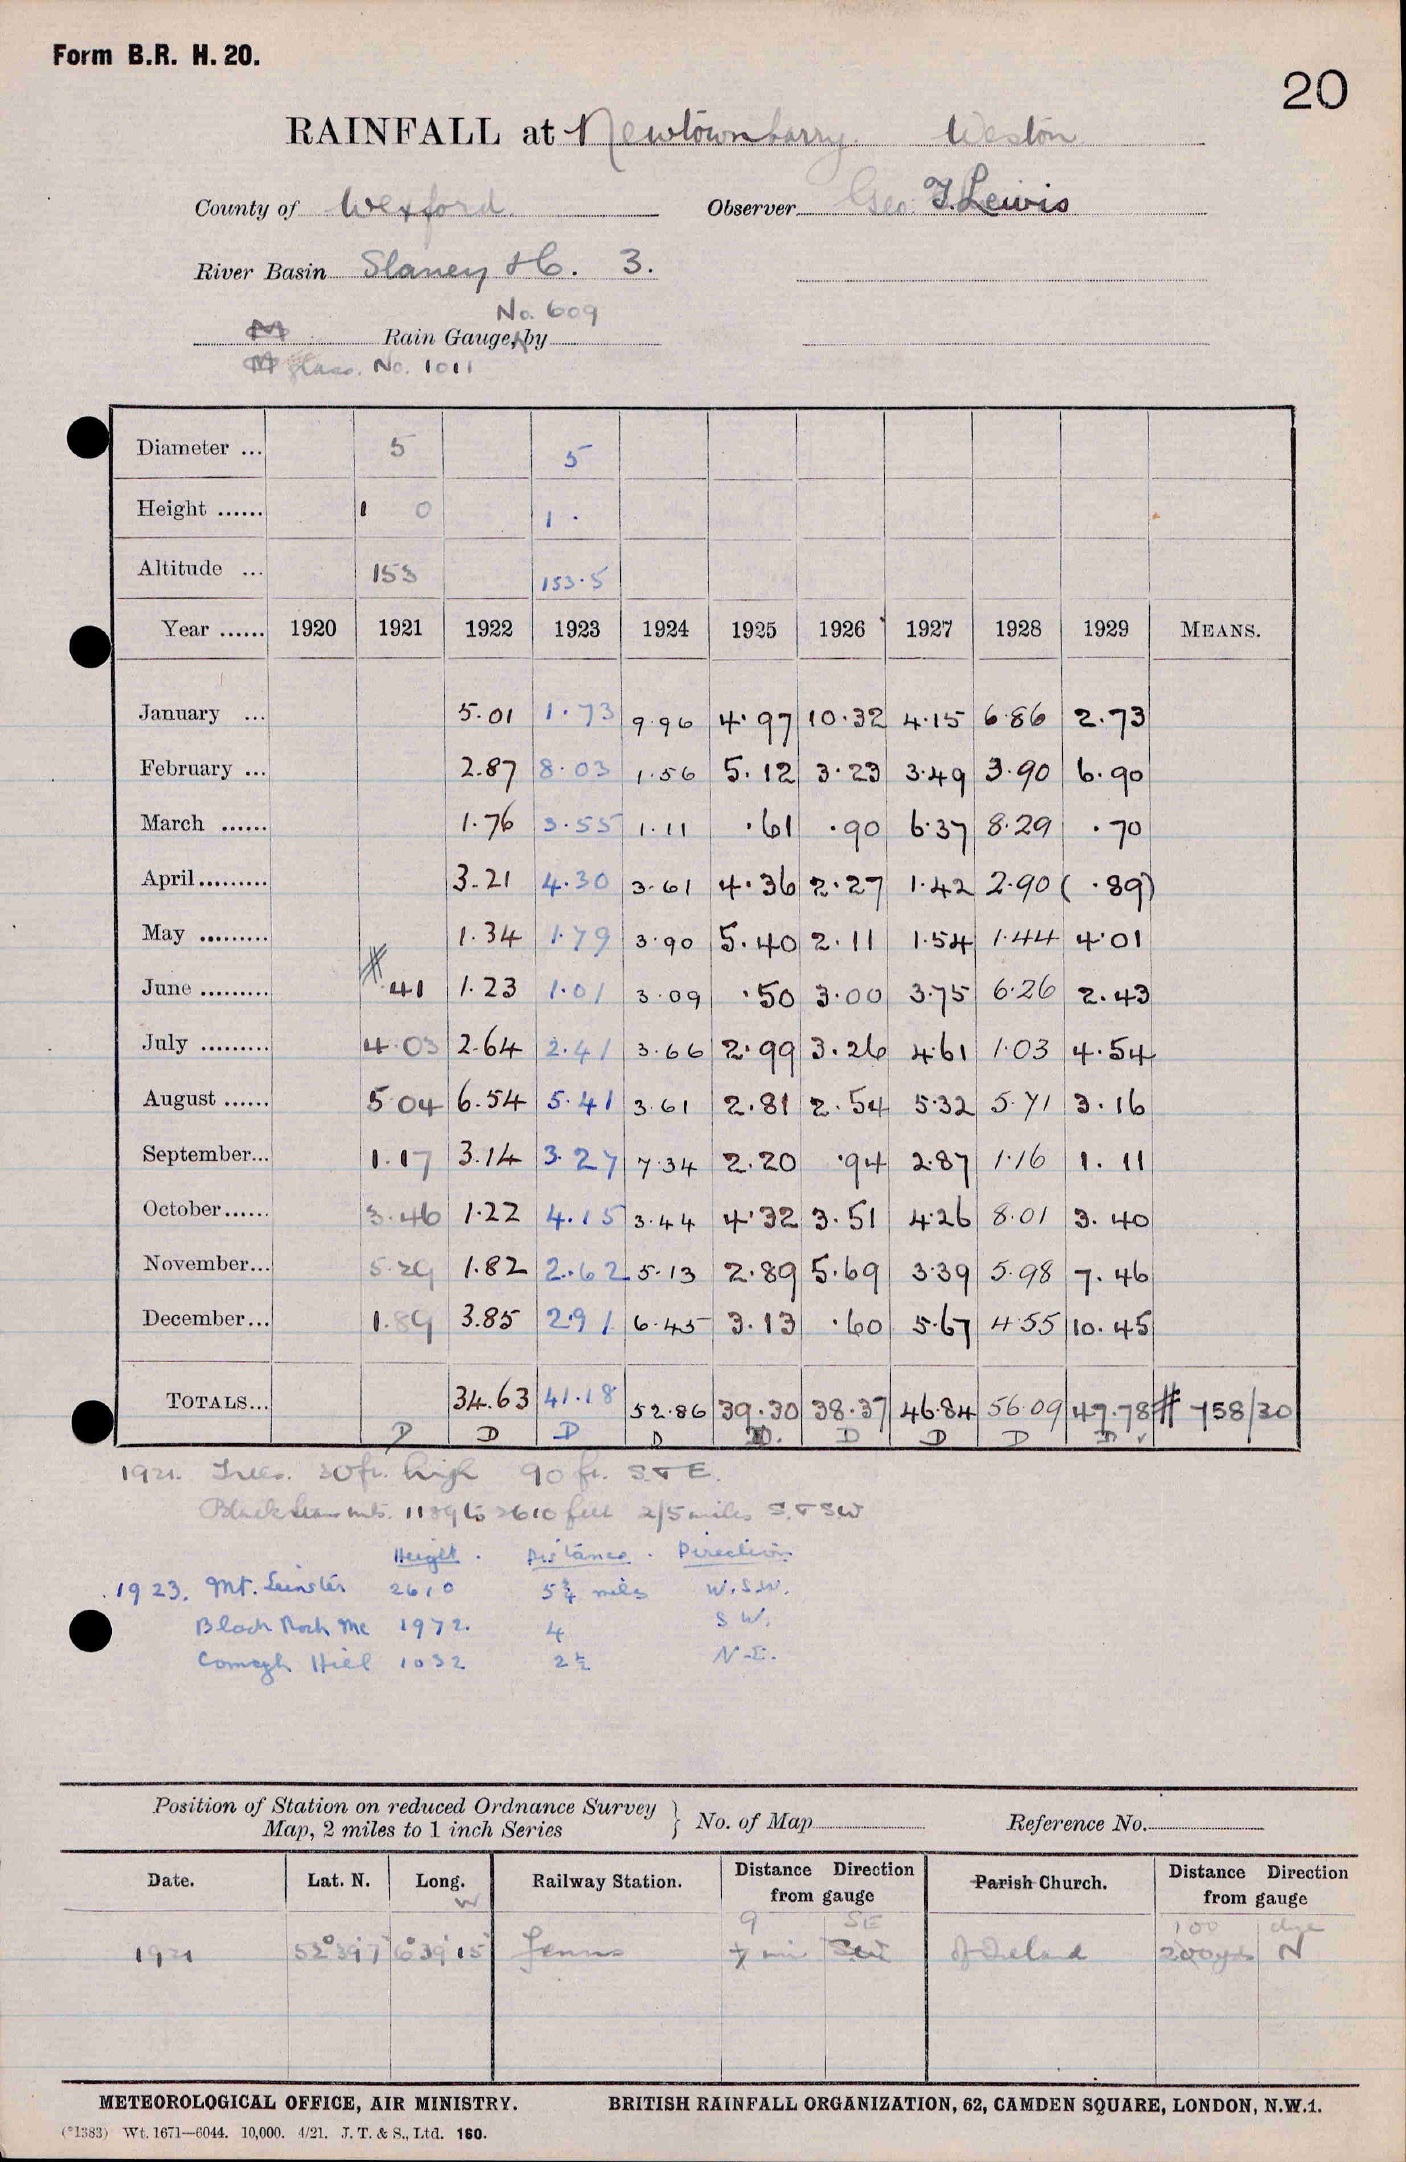 Form B.R. H. 20.
20
RAINFALL at Newtownbarry. Weston
County of Wexford. Observer Geo. F. Lewis
River Basin Slaney &c. 3.
No. 609
Rain Gauge, by
M glass. No. 1011
Diameter ... 5 5
Height ...... 1 0 1 ·
Altitude ... 153 153.5
Year ...... 1920 1921 1922 1923 1924 1925 1926 1927 1928 1929 MEANS.
January ... 5.01 1.73 9.96 4.97 10.32 4.15 6.86 2.73
February ... 2.87 8.03 1.56 5.12 3.23 3.49 3.90 6.90
March ...... 1.76 3.55 1.11 .61 .90 6.37 8.29 .70
April ......... 3.21 4.30 3.61 4.36 2.27 1.42 2.90 ( .89)
May ......... 1.34 1.79 3.90 5.40 2.11 1.54 1.44 4.01
June ......... # .41 1.23 1.01 3.09 .50 3.00 3.75 6.26 2.43
July ......... 4.03 2.64 2.41 3.66 2.99 3.26 4.61 1.03 4.54
August ...... 5.04 6.54 5.41 3.61 2.81 2.54 5.32 5.71 3.16
September... 1.17 3.14 3.27 7.34 2.20 .94 2.87 1.16 1.11
October...... 3.46 1.22 4.15 3.44 4.32 3.51 4.26 8.01 3.40
November... 5.29 1.82 2.62 5.13 2.89 5.69 3.39 5.98 7.46
December... 1.89 3.85 2.91 6.45 3.13 .60 5.67 4.55 10.45
TOTALS... 34.63 41.18 52.86 39.30 38.37 46.84 56.09 47.78 # 758/30
D D D D D. D D D D ✓
1921. Trees. 30 ft. high 90 ft. S. & E.
mts. 1189 to 2610 feet 2/5 miles S. & SW
Height. Distance. Direction
1923. Mt. Leinster 2610 5¾ miles W.S.W.
Black Rock Mt 1972. 4 S W.
Hill 1032 2½ N.E.
Position of Station on reduced Ordnance Survey
Map, 2 miles to 1 inch Series } No. of Map Reference No.
Date. Lat. N. Long. W Railway Station. Distance Direction from gauge Parish Church. Distance Direction from gauge
9 SE 100 dye
1921 52°39'7 6°39'15 Ferns 7 mi SW of Ireland 200yds N
METEOROLOGICAL OFFICE, AIR MINISTRY. BRITISH RAINFALL ORGANIZATION, 62, CAMDEN SQUARE, LONDON, N.W.1.
(*1383) Wt. 1671—6044. 10,000. 4/21. J. T. & S., Ltd. 160.